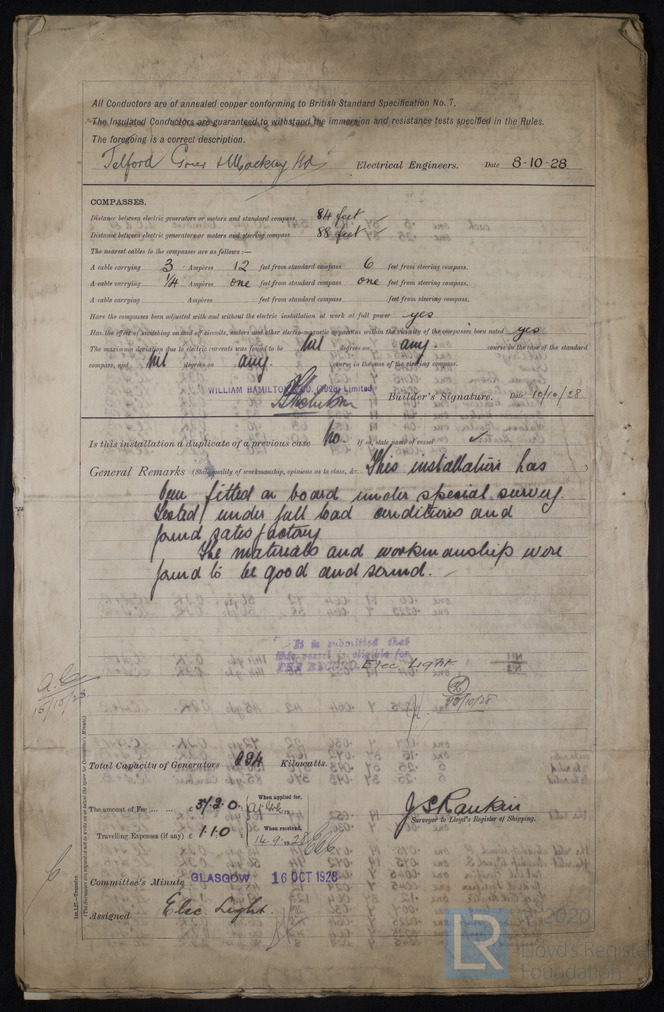 All Conductors are of annealed copper conforming to British Standard Specification No. 7.
The Insulated Conductors are guaranteed to withstand the immersion and resistance tests specified in the Rules.
The foregoing is a correct description.
Telford Grier & Mackay Ltd Electrical Engineers. Date 8-10-28.
COMPASSES.
Distance between electric generators or motors and standard compass 84 feet
Distance between electric generators or motors and steering compass 88 feet
The nearest cables to the compasses are as follows:—
A cable carrying 3 Ampères 12 feet from standard compass 6 feet from steering compass.
A cable carrying 1/4 Ampères one feet from standard compass one feet from steering compass.
A cable carrying Ampères feet from standard compass feet from steering compass.
Have the compasses been adjusted with and without the electric installation at work at full power yes
Has the effect of switching on and off circuits, motors and other electro-magnetic apparatus within the vicinity of the compasses been noted yes
The maximum deviation due to electric currents was found to be Nil degrees on any. course in the case of the standard
compass, and Nil degrees on any. course in the case of the steering compass.
WILLIAM HAMILTON & CO. (1926) Limited
Builder's Signature. Date 10/10/28
Is this installation a duplicate of a previous case No If so, state name of vessel
General Remarks (State quality of workmanship, opinions as to class, &c. This installation has
been fitted on board under special survey.
Tested under full load conditions and
found satisfactory
The materials and workmanship were
found to be good and sound.
It is submitted that
this vessel is eligible for
THE RECORD. Elec Light
15/10/28
Total Capacity of Generators Kilowatts.
The amount of Fee ... ... £ 37:2:0 When applied for,
Travelling Expenses (if any) £ 1:1:0 When received,
14.9.1928
J S Rankin
Surveyor to Lloyd's Register of Shipping.
Committee's Minute GLASGOW 16 OCT 1928
Assigned Elec. Light.
2020
Lloyd's Register
Foundation
LR